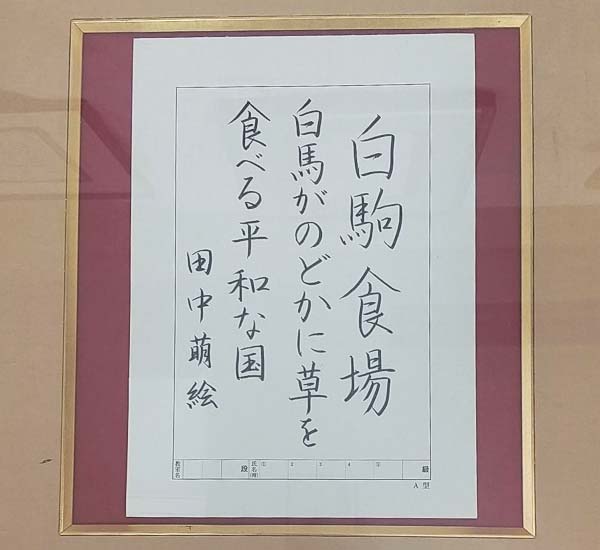 白駒食場
白馬がのどかに草を
食べる平和な国
田中萌絵
教室名
段
氏名(号)
①
2
3
4
年
級
A型